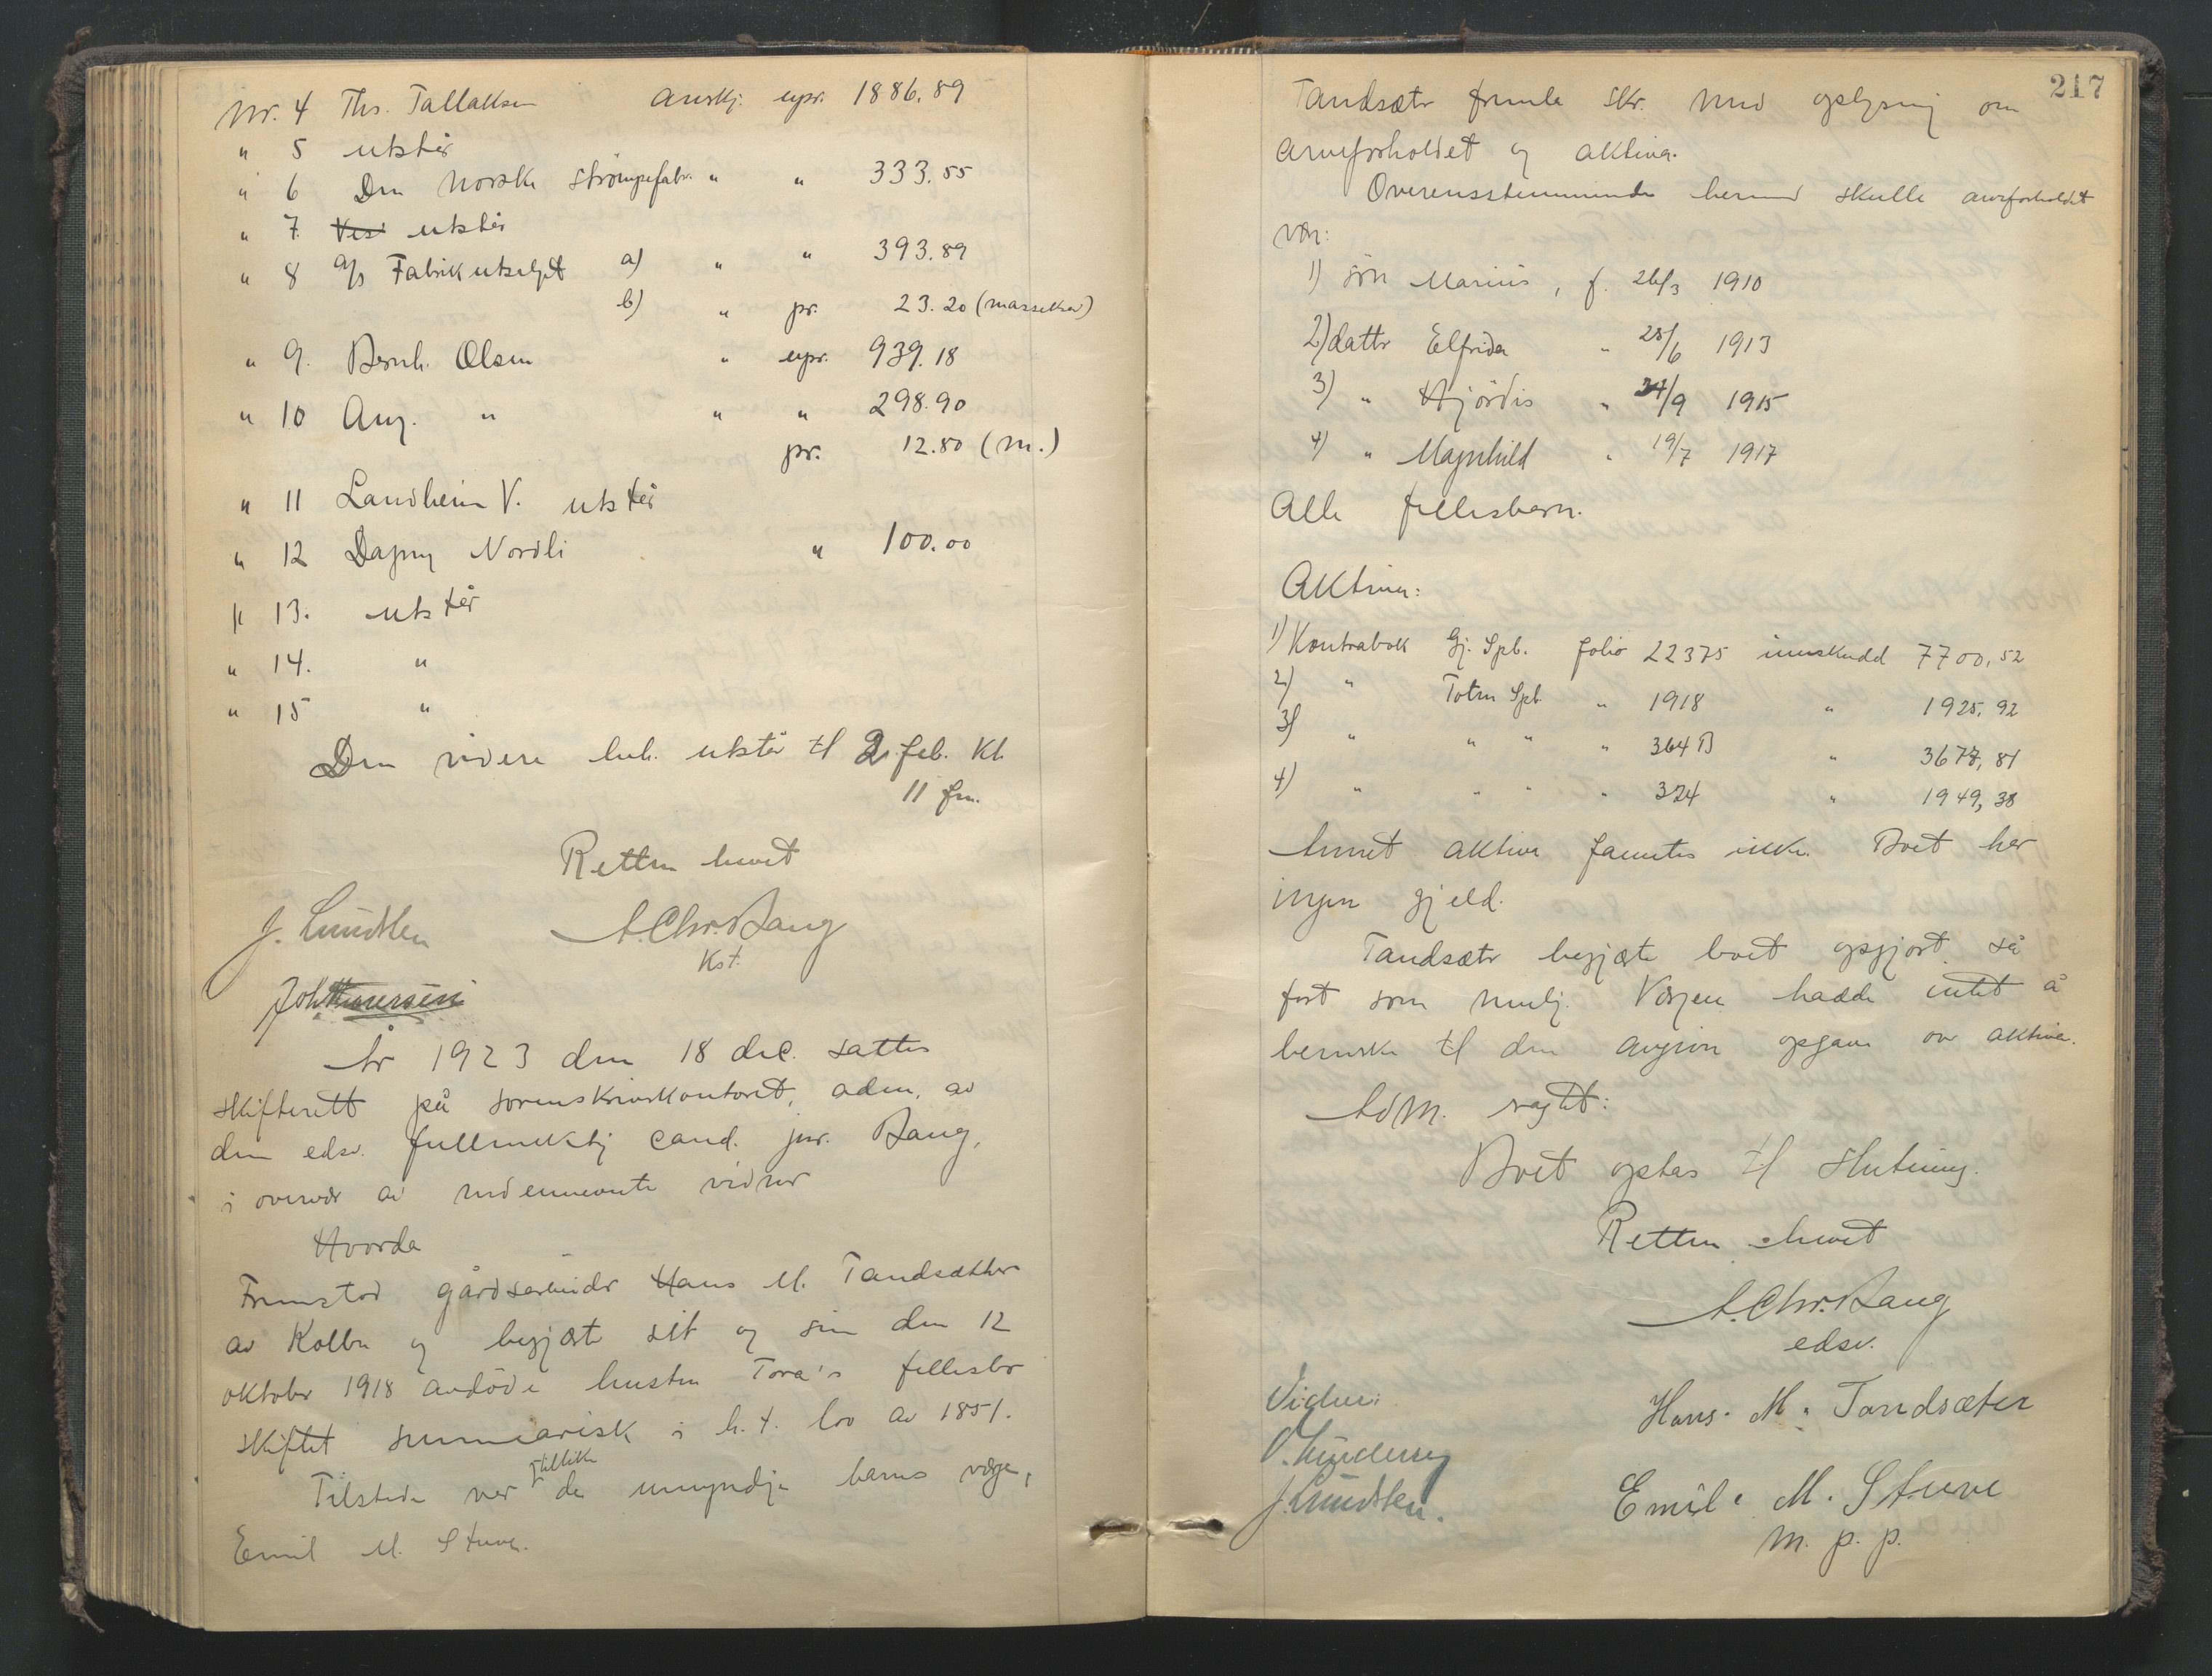 Nr. 4 Ths. Tallaksen anerkj. upr. 1886.89
" 5 utstår
" 6 Den norske strömpefabr. " " 333.55
" 7. Ves utstår
" 8 A/s Fabrikutsalget a) " " 393.89
b) " pr. 23.20 (massekrav)
" 9. Bernh. Olsen " upr. 939.18
" 10 Aug. " " " 298.90
pr. 12.80 (m.)
" 11 Landheim V. utstår
" 12 Dagny Nordli " 100.00
" 13. utstår
" 14. "
" 15 "
Den videre beh. utstår til 2. feb. kl.
11 fm.
Retten hevet
J. Lundsten A. Chr. Bang
Kst.
År 1923 den 18 dec. sattes
skifterett på sorenskriverkontoret, adm. av
den edsv. fullmektig cand. jur. Bang,
i overvær av nedennevnte vidner
Hvorda
Fremstod gårdsarbeider Hans M. Tandsætter
av Kolbu og begjærte sit og sin den 12
oktober 1918 avdöde hustru Tora's fellesbo
skiftet summarisk i h.t. lov av 1851.
Tilstede var tillike de umyndige barns verge,
Emil M. Stuve.
217
Tandsæter fremla skr. med oplysning om
arveforholdet og aktiva.
Overensstemmende hermed skulle arveforholdet
vær:
1) sön Marius, f. 26/3 1910
2) datter Elfrida " 28/6 1913
3) " Hjördis " 27/9 1915
4) " Magnhild " 19/7 1917
Alle fellesbarn.
Aktiva:
1) Kontrabok Gj. Spb. folio 22375 innskudd 7700,52
2) " Toten Spb. " 1918 " 1925,92
3) " " " " 364 B " 3677,81
4) " " " " 324 " 1949,38
Annet aktiva fanntes ikke. Boet har
ingen gjeld.
Tandsæter begjærte boet opgjort så
fort som mulig. Vergen hadde intet å
bemerke til den avgivne opgave over aktiva.
Adm. vagtet:
Boet optas til slutning.
Retten hevet
A. Chr. Bang
edsv.
Vidner: Hans. M. Tandsæter
J. Lundsten. Emil. M. Stuve
m. p. p.